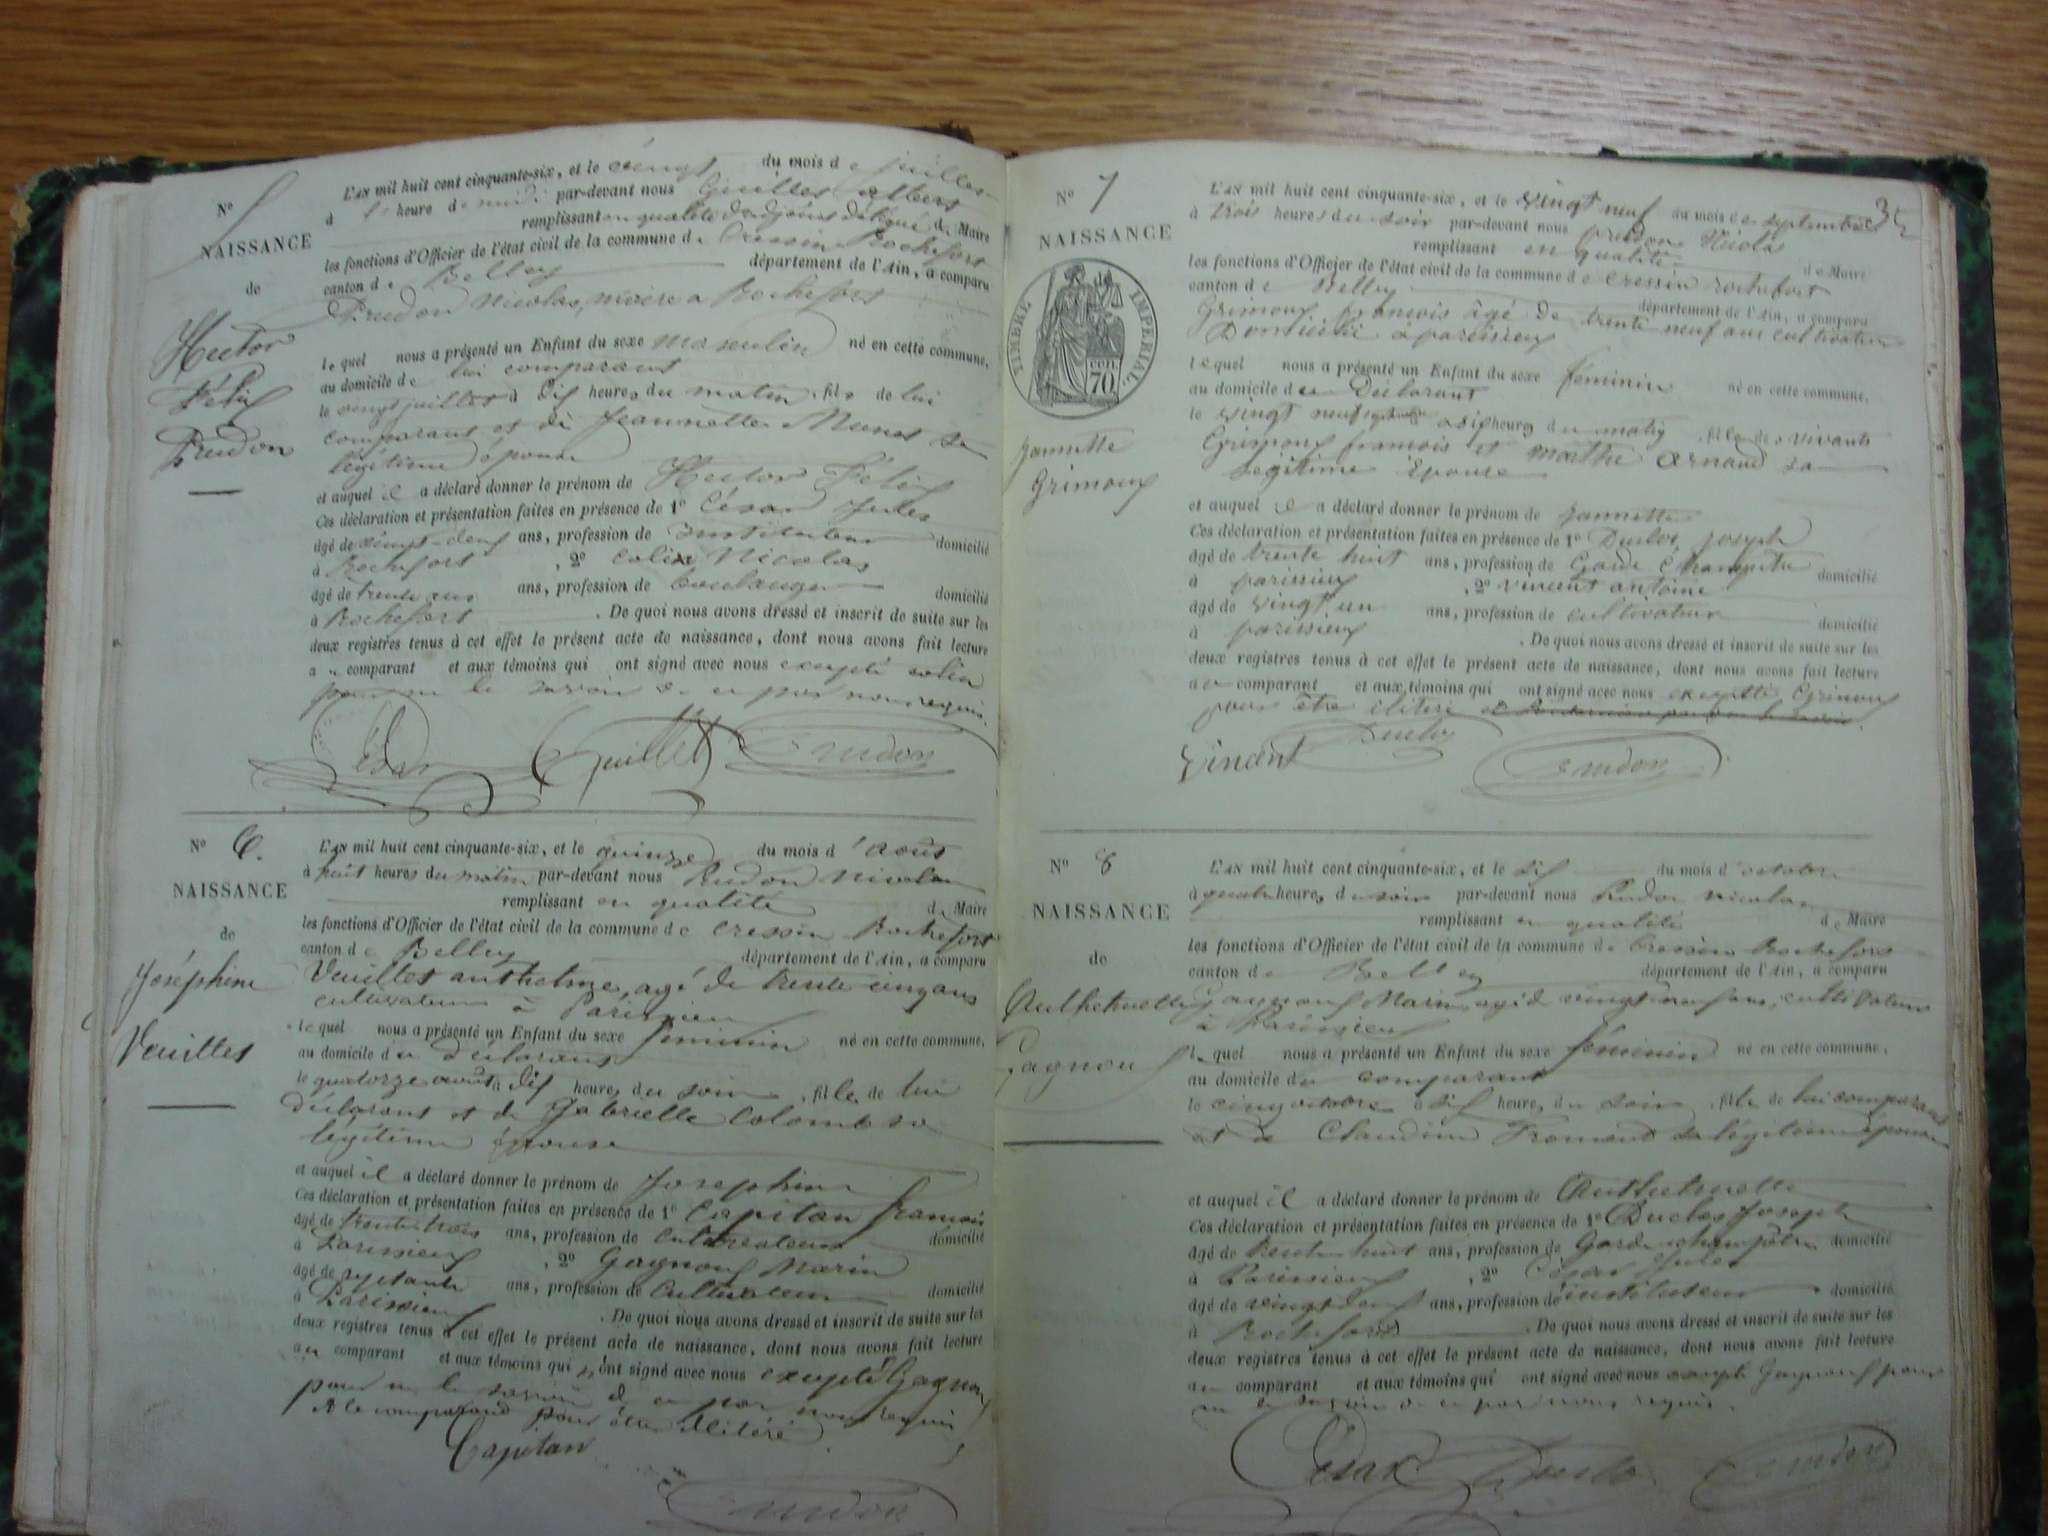 N°
NAISSANCE
de
Hector
Félix
Prudon
L'AN mil huit cent cinquante-six, et le vingt du mois de juillet
à heure de midi par-devant nous Guillet Albert
remplissant en qualité d'adjoint délégué de Maire
les fonctions d'Officier de l'état civil de la commune de Cressin Rochefort
canton de Belley département de l'Ain, a comparu
Prudon Nicolas, maire a Rochefort
lequel nous a présenté un Enfant du sexe masculin né en cette commune,
au domicile de lui comparant
le vingt juillet à dix heures du matin, fils de lui
comparant et de Jeannette sa
légitime épouse
et auquel il a déclaré donner le prénom de Hector Félix
Ces déclaration et présentation faites en présence de 1° César Jules
âgé de vingt-deux ans, profession de instituteur domicilié
à Rochefort, 2° Colin Nicolas
âgé de trente ans, profession de boulanger domicilié
à Rochefort. De quoi nous avons dressé et inscrit de suite sur les
deux registres tenus à cet effet le présent acte de naissance, dont nous avons fait lecture
au comparant et aux témoins qui ont signé avec nous excepté colin
pour ne le savoir de ce par nous requis.
César Guillet Prudon
N° 6.
NAISSANCE
de
Joséphine
Veuillet
L'AN mil huit cent cinquante-six, et le quinze du mois d'août
à huit heures du matin par-devant nous Prudon Nicolas
remplissant en qualité de Maire
les fonctions d'Officier de l'état civil de la commune de Cressin Rochefort
canton de Belley département de l'Ain, a comparu
Veuillet anthelme, agé de trente cinq ans
cultivateur à Parissieu
lequel nous a présenté un Enfant du sexe féminin né en cette commune,
au domicile du déclarant
le quatorze août à dix heures du soir, fille de lui
déclarant et de Gabrielle Colomb sa
légitime épouse
et auquel il a déclaré donner le prénom de Josephine
Ces déclaration et présentation faites en présence de 1° Capitan francois
âgé de trente trois ans, profession de cultivateur domicilié
à Parissieux, 2° Gagnoux Marin
âgé de septante ans, profession de Cultivateur domicilié
à Parissieux. De quoi nous avons dressé et inscrit de suite sur les
deux registres tenus à cet effet le présent acte de naissance, dont nous avons fait lecture
au comparant et aux témoins qui ont signé avec nous excepté Gagnoux
pour ne le savoir de ce par nous requis
et le comparant pour être ilitéré
Capitan
Prudon
N° 7
35
NAISSANCE
TIMBRE IMPERIAL
CEN. 70
Jannette
Grimoux
L'AN mil huit cent cinquante-six, et le vingt neuf du mois de septembre
à trois heures du soir par-devant nous prudon Nicolas
remplissant en qualité de Maire
les fonctions d'Officier de l'état civil de la commune de cressin rochefort
canton de Belley département de l'Ain, a comparu
Grimoux francois âgé de trente neuf ans cultivateur
Domicilié à parissieux
lequel nous a présenté un Enfant du sexe féminin né en cette commune,
au domicile du Déclarant
le vingt neuf septembre a six heures du matin, fille de vivants
Grimoux francois et marthe arnaud sa
Legitime Epouse
et auquel il a déclaré donner le prénom de jannette
Ces déclaration et présentation faites en présence de 1° Duclos joseph
âgé de trente huit ans, profession de Garde Champêtre domicilié
à parissieux, 2° vincent antoine
âgé de vingt un ans, profession de cultivateur domicilié
à parissieux. De quoi nous avons dressé et inscrit de suite sur les
deux registres tenus à cet effet le présent acte de naissance, dont nous avons fait lecture
au comparant et aux témoins qui ont signé avec nous exceptté Grimoux
pour être ilitéré
vincent Duclos Prudon
N° 8
NAISSANCE
de
Anthelmette
Gagnoux
L'AN mil huit cent cinquante-six, et le six du mois d'octobre
à quatre heures du soir par-devant nous Prudon Nicolas
remplissant en qualité de Maire
les fonctions d'Officier de l'état civil de la commune de Cressin Rochefort
canton de Belley département de l'Ain, a comparu
Gagnoux Marin, agé de vingt neuf ans, cultivateur
à Parissieux
lequel nous a présenté un Enfant du sexe féminin né en cette commune,
au domicile du comparant
le cinq octobre à six heures du soir, fille de lui comparant
et de Claudine Froment sa légitime épouse
et auquel il a déclaré donner le prénom de Anthelmette
Ces déclaration et présentation faites en présence de 1° Duclos Joseph
âgé de trente huit ans, profession de Garde champêtre domicilié
à Parissieux, 2° César Jules
âgé de vingt deux ans, profession de instituteur domicilié
à Rochefort. De quoi nous avons dressé et inscrit de suite sur les
deux registres tenus à cet effet le présent acte de naissance, dont nous avons fait lecture
au comparant et aux témoins qui ont signé avec nous excepté Gagnoux pour
ne le savoir de ce par nous requis.
César Duclos Prudon